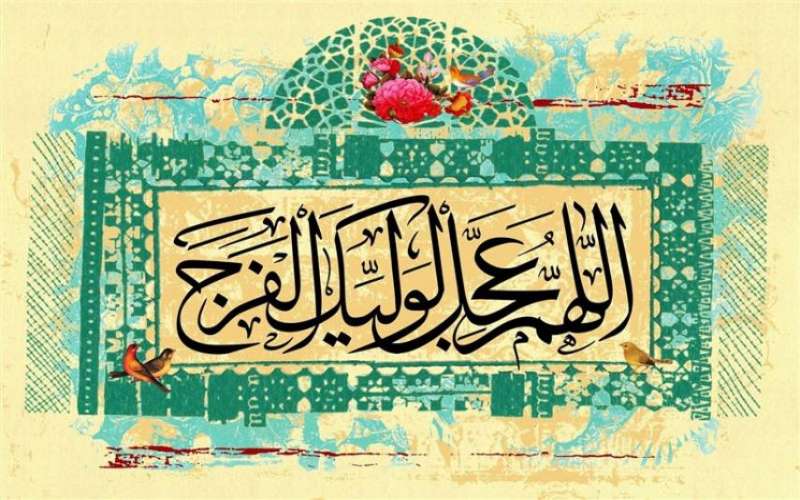 اللّٰهُمَّ عَجِّل لِوَلیِّکَ الفَرَجَ